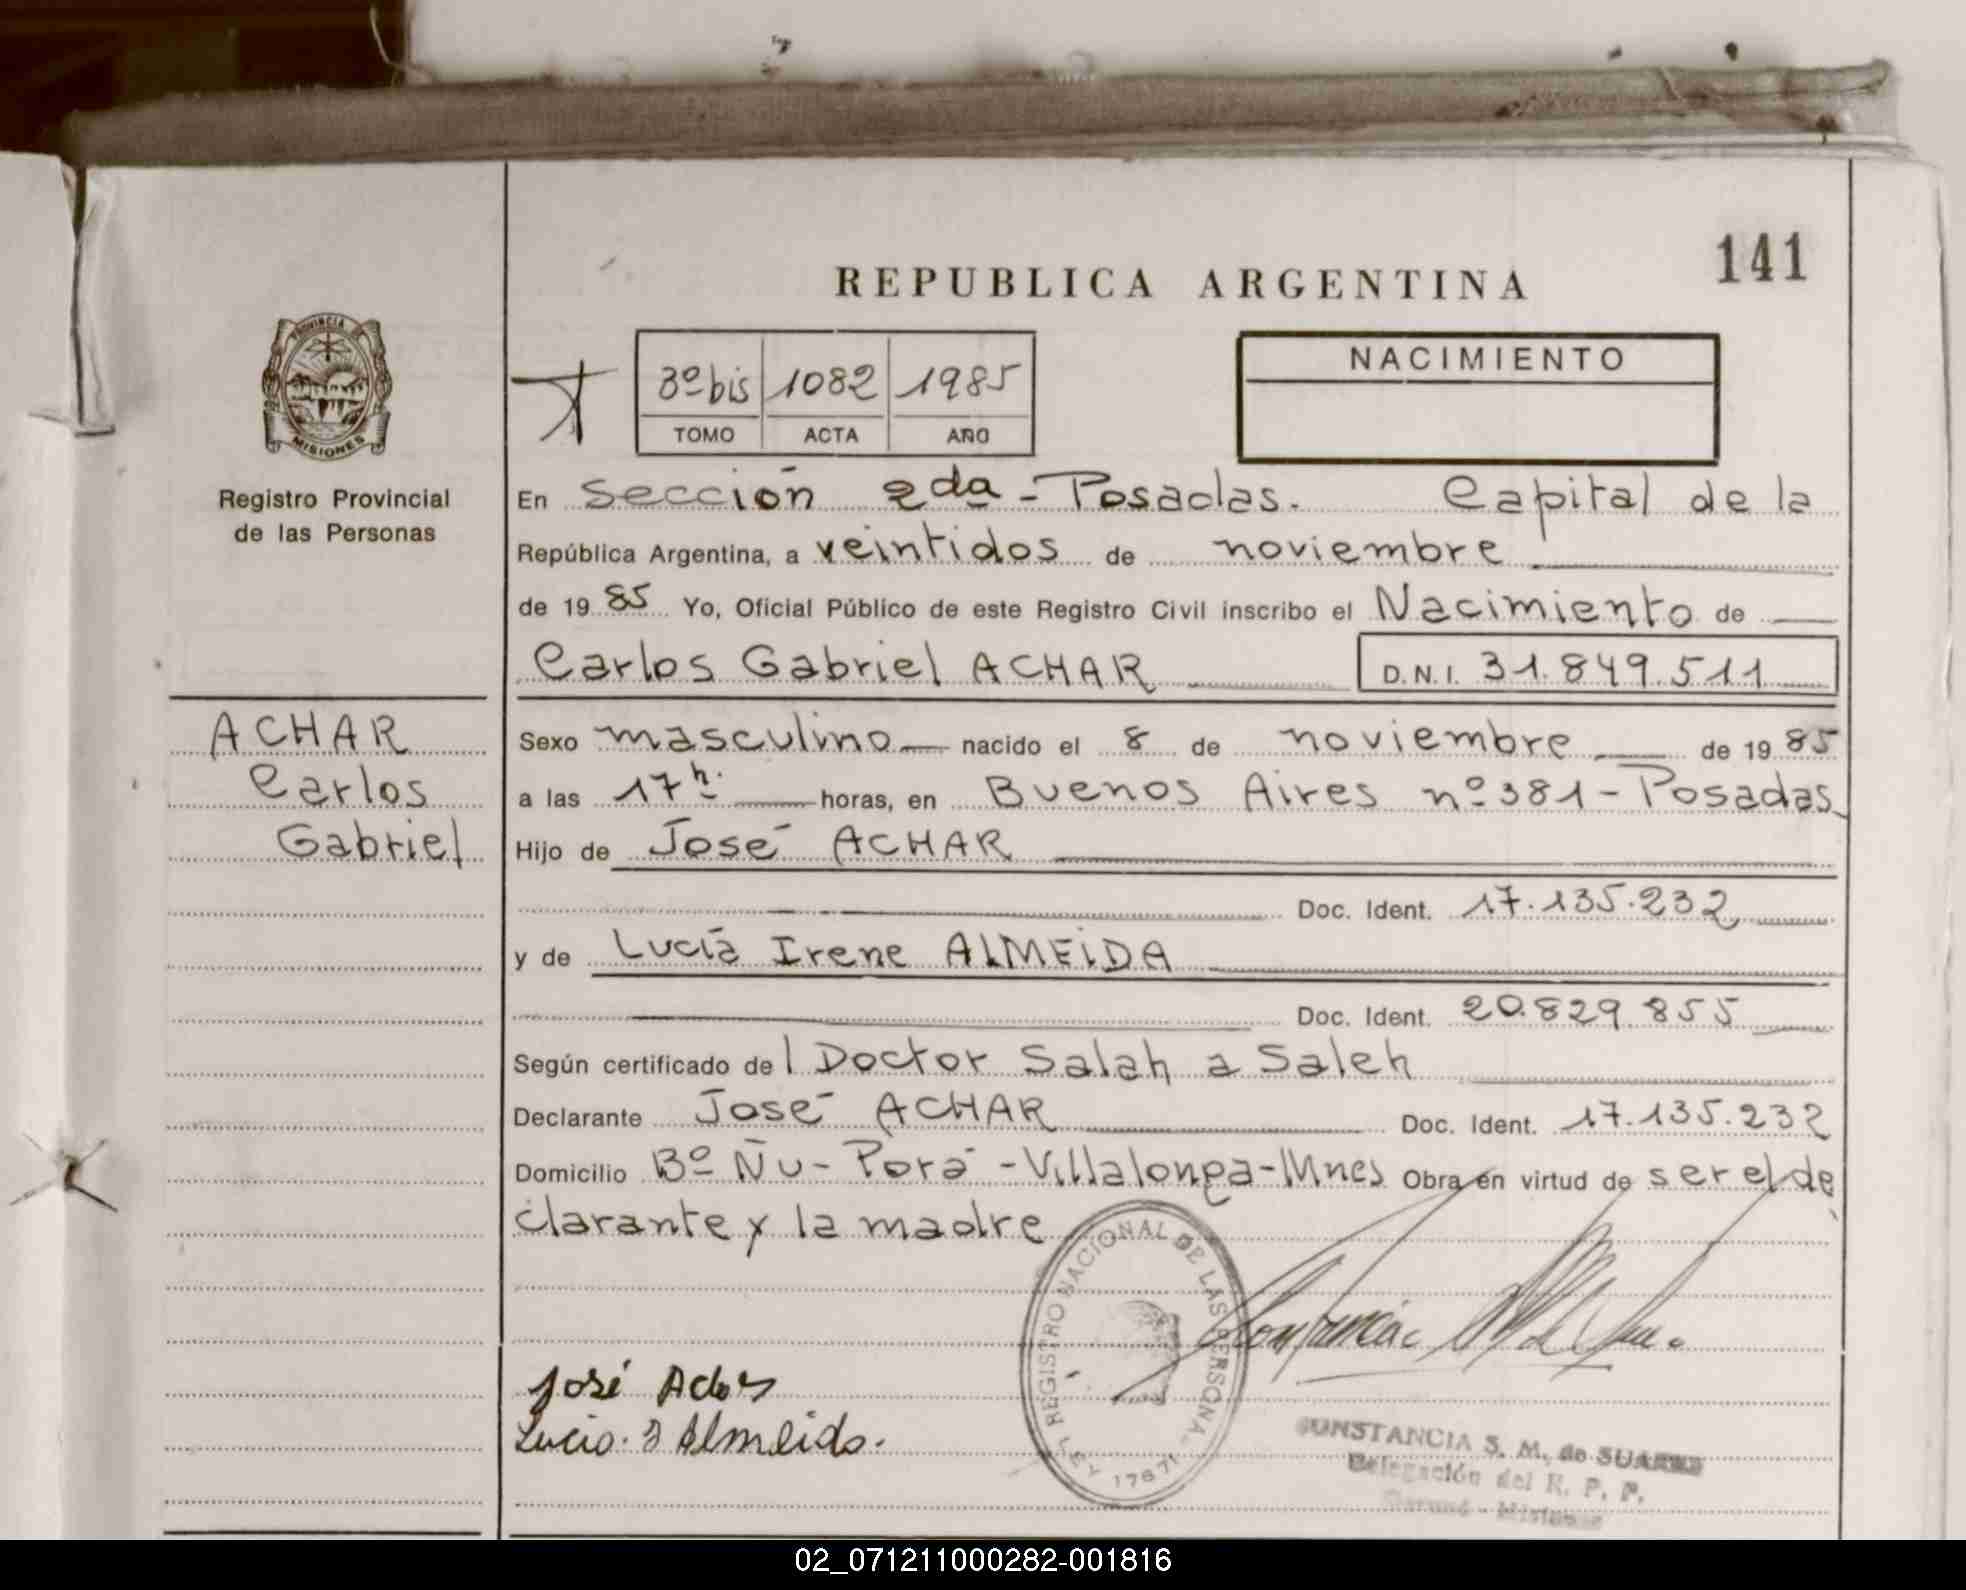 141
REPUBLICA ARGENTINA
PROVINCIA DE
MISIONES
3º bis 1082 1985
TOMO ACTA AÑO
NACIMIENTO
Registro Provincial
de las Personas
En Sección 2da - Posadas. Capital de la
República Argentina, a veintidos de noviembre
de 1985 Yo, Oficial Público de este Registro Civil inscribo el Nacimiento de
Carlos Gabriel ACHAR D.N.I. 31.849.511
ACHAR
Carlos
Gabriel
Sexo masculino nacido el 8 de noviembre de 1985
a las 17h. horas, en Buenos Aires nº 381 - Posadas
Hijo de José ACHAR
Doc. Ident. 17.135.232
y de Lucía Irene ALMEIDA
Doc. Ident. 20.829.855
Según certificado del Doctor Salah a Saleh
Declarante José ACHAR Doc. Ident. 17.135.232
Domicilio Bº Ñu - Porá - Villalonga - Mnes Obra en virtud de ser el de
clarante y la madre
REGISTRO NACIONAL DE LAS PERSONAS
LEY 17671
José
Lucia. I Almeida.
CONSTANCIA S. M. de SUAREZ
Delegación del R. P. P.
Misiones
02_071211000282-001816